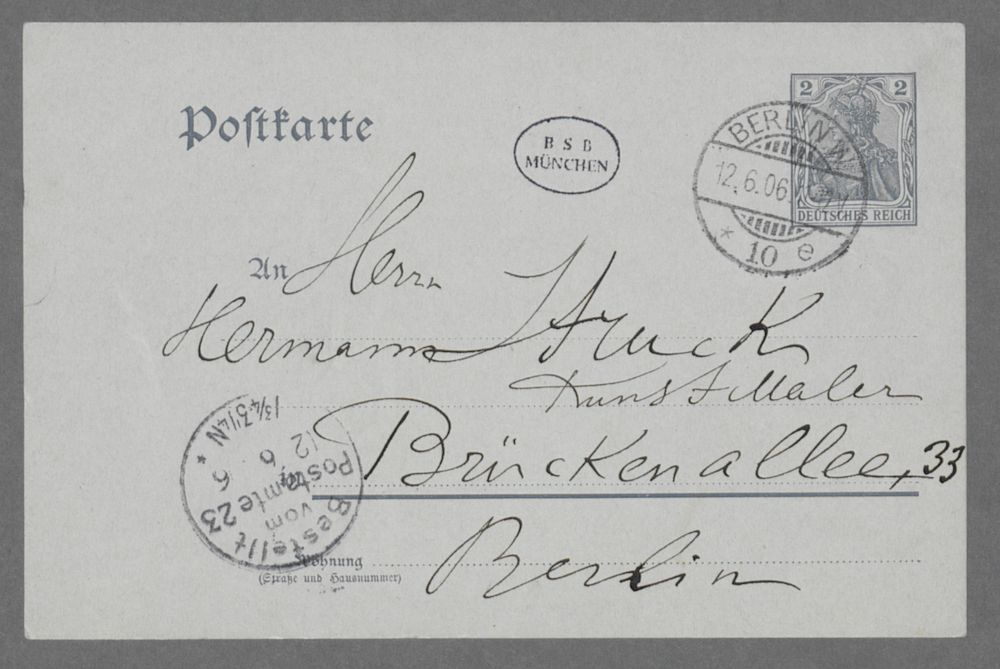 Postkarte
B S B
MÜNCHEN
2 2
DEUTSCHES REICH
BERLIN W
12.6.06.
* 10 e
An Herrn
Hermann Struck
Kunstmaler
Brückenallee, 33
Berlin
Bestellt
vom
Postamte 23
12 6 6
1¾-3¼N *
Wohnung
(Straße und Hausnummer)